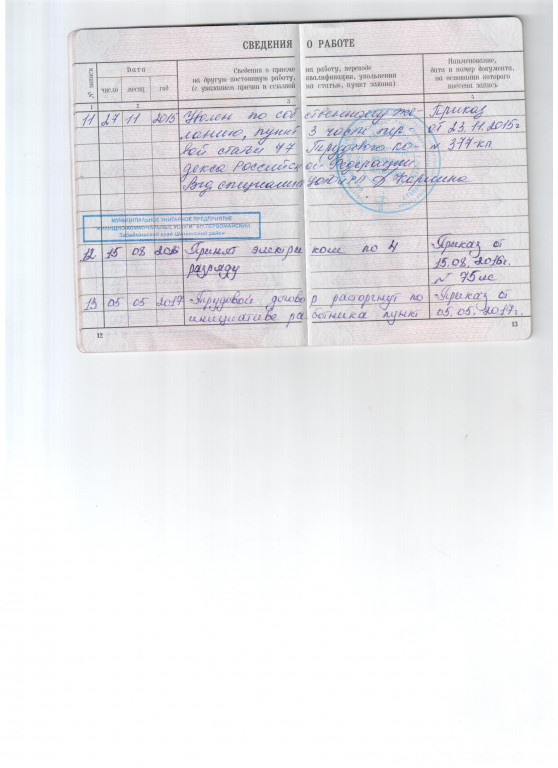 СВЕДЕНИЯ О РАБОТЕ
№ записи
Дата
число
месяц
год
Сведения о приеме на работу, переводе
на другую постоянную работу, квалификации, увольнении
(с указанием причин и ссылкой на статью, пункт закона)
Наименование,
дата и номер документа,
на основании которого
внесена запись
1 2 3 4
11 27 11 2015 Уволен по собственному же- Приказ
ланию, пункт 3 части пер- от 23.11.2015г
вой статьи 77 Трудового ко- № 377-кл
декса Российской Федерации.
МУНИЦИПАЛЬНОЕ УНИТАРНОЕ ПРЕДПРИЯТИЕ
"ЖИЛИЩНО-КОММУНАЛЬНЫЕ УСЛУГИ" ПГТ.ПЕРВОМАЙСКИЙ
Забайкальский край Шилкинский район
12 15 08 2016 Принят электриком по 4 Приказ от
разряду 15.08.2016г.
№ 75лс
13 05 05 2017 Трудовой договор расторгнут по Приказ от
инициативе работника пункт 05.05.2017г.
12 13